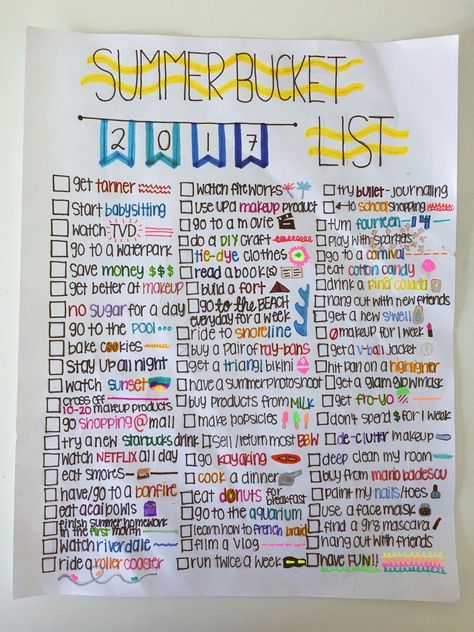 SUMMER BUCKET
2017
LIST
get tanner
start babysitting
watch TVD
go to a waterpark
save money $$$
get better at makeup
no sugar for a day
go to the pool
bake cookies
stay up all night
watch sunset
cross off
10-20 makeup products
go shopping @ mall
try a new starbucks drink
watch NETFLIX all day
eat smores
have/go to a bonfire
eat acai bowls
finish summer homework
in the first month
watch riverdale
ride a roller coaster
watch fireworks
use up a makeup product
go to a movie
do a DIY craft
tie-dye clothes
read a book(s)
build a fort
go to the BEACH
everyday for a week
ride to shoreline
buy a pair of ray-bans
get a triangl bikini
have a summer photoshoot
buy products from MILK
make popsicles
sell/return most BBW
go kayaking
cook a dinner
eat donuts for
breakfast
go to the aquarium
learn how to french braid
film a vlog
run twice a week
try bullet-journaling
school shopping
turn fourteen - 14
play with sparklers
go to a carnival
eat cotton candy
drink a pina colada
hang out with new friends
get a new s'well
makeup for 1 week
get a v-ball jacket
hit pan on a highlighter
get a glamglow mask
get fro-yo
don't spend $ for 1 week
de-clutter makeup
deep clean my room
buy from mario badescu
paint my nails/toes
use a face mask
find a gr8 mascara
hang out with friends
have FUN!!